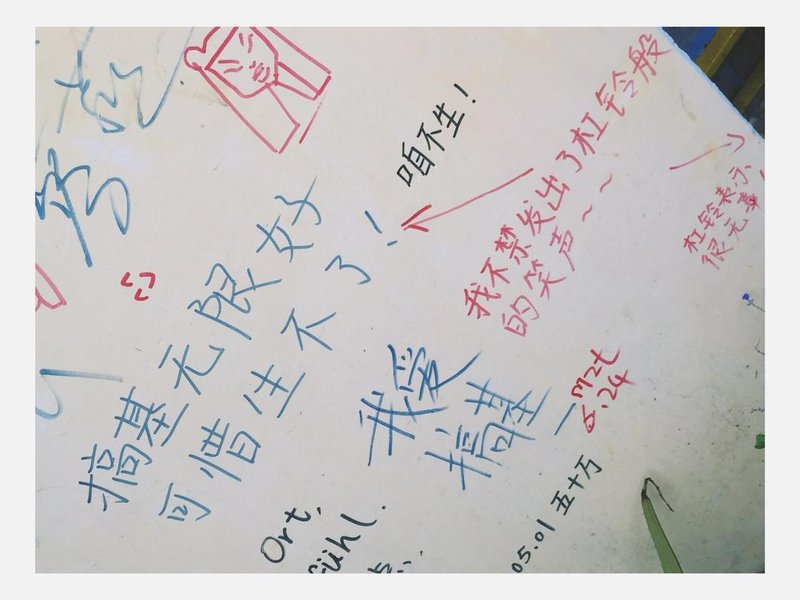 搞基无限好
可惜生不了!
咱不生!
我不禁发出了杠铃般
的笑声~~
杠铃表示
很无辜!
我爱
搞基
mzt
5.24
Ort,
fühl.
05.01 五十万